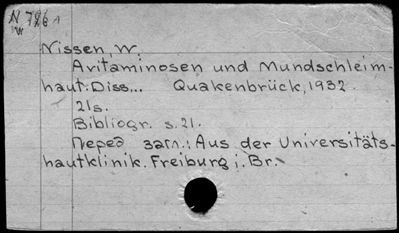 N 786
W
Nissen, W.
Avitaminosen und Mundschleim-
haut: Diss... Quakenbrück, 1932.
21s.
Bibliogr. s. 21.
Перед загл.: Aus der Universitäts-
hautklinik. Freiburg i. Br.